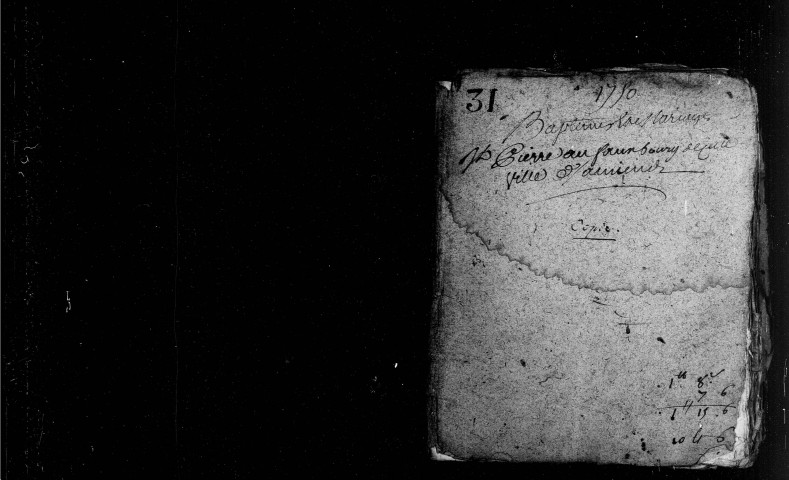 31
1750
Baptemes
St Pierre au faux bourg de cette
ville d'amiens
Copie.
1tt 8s
7 6
1tt 15 6
6